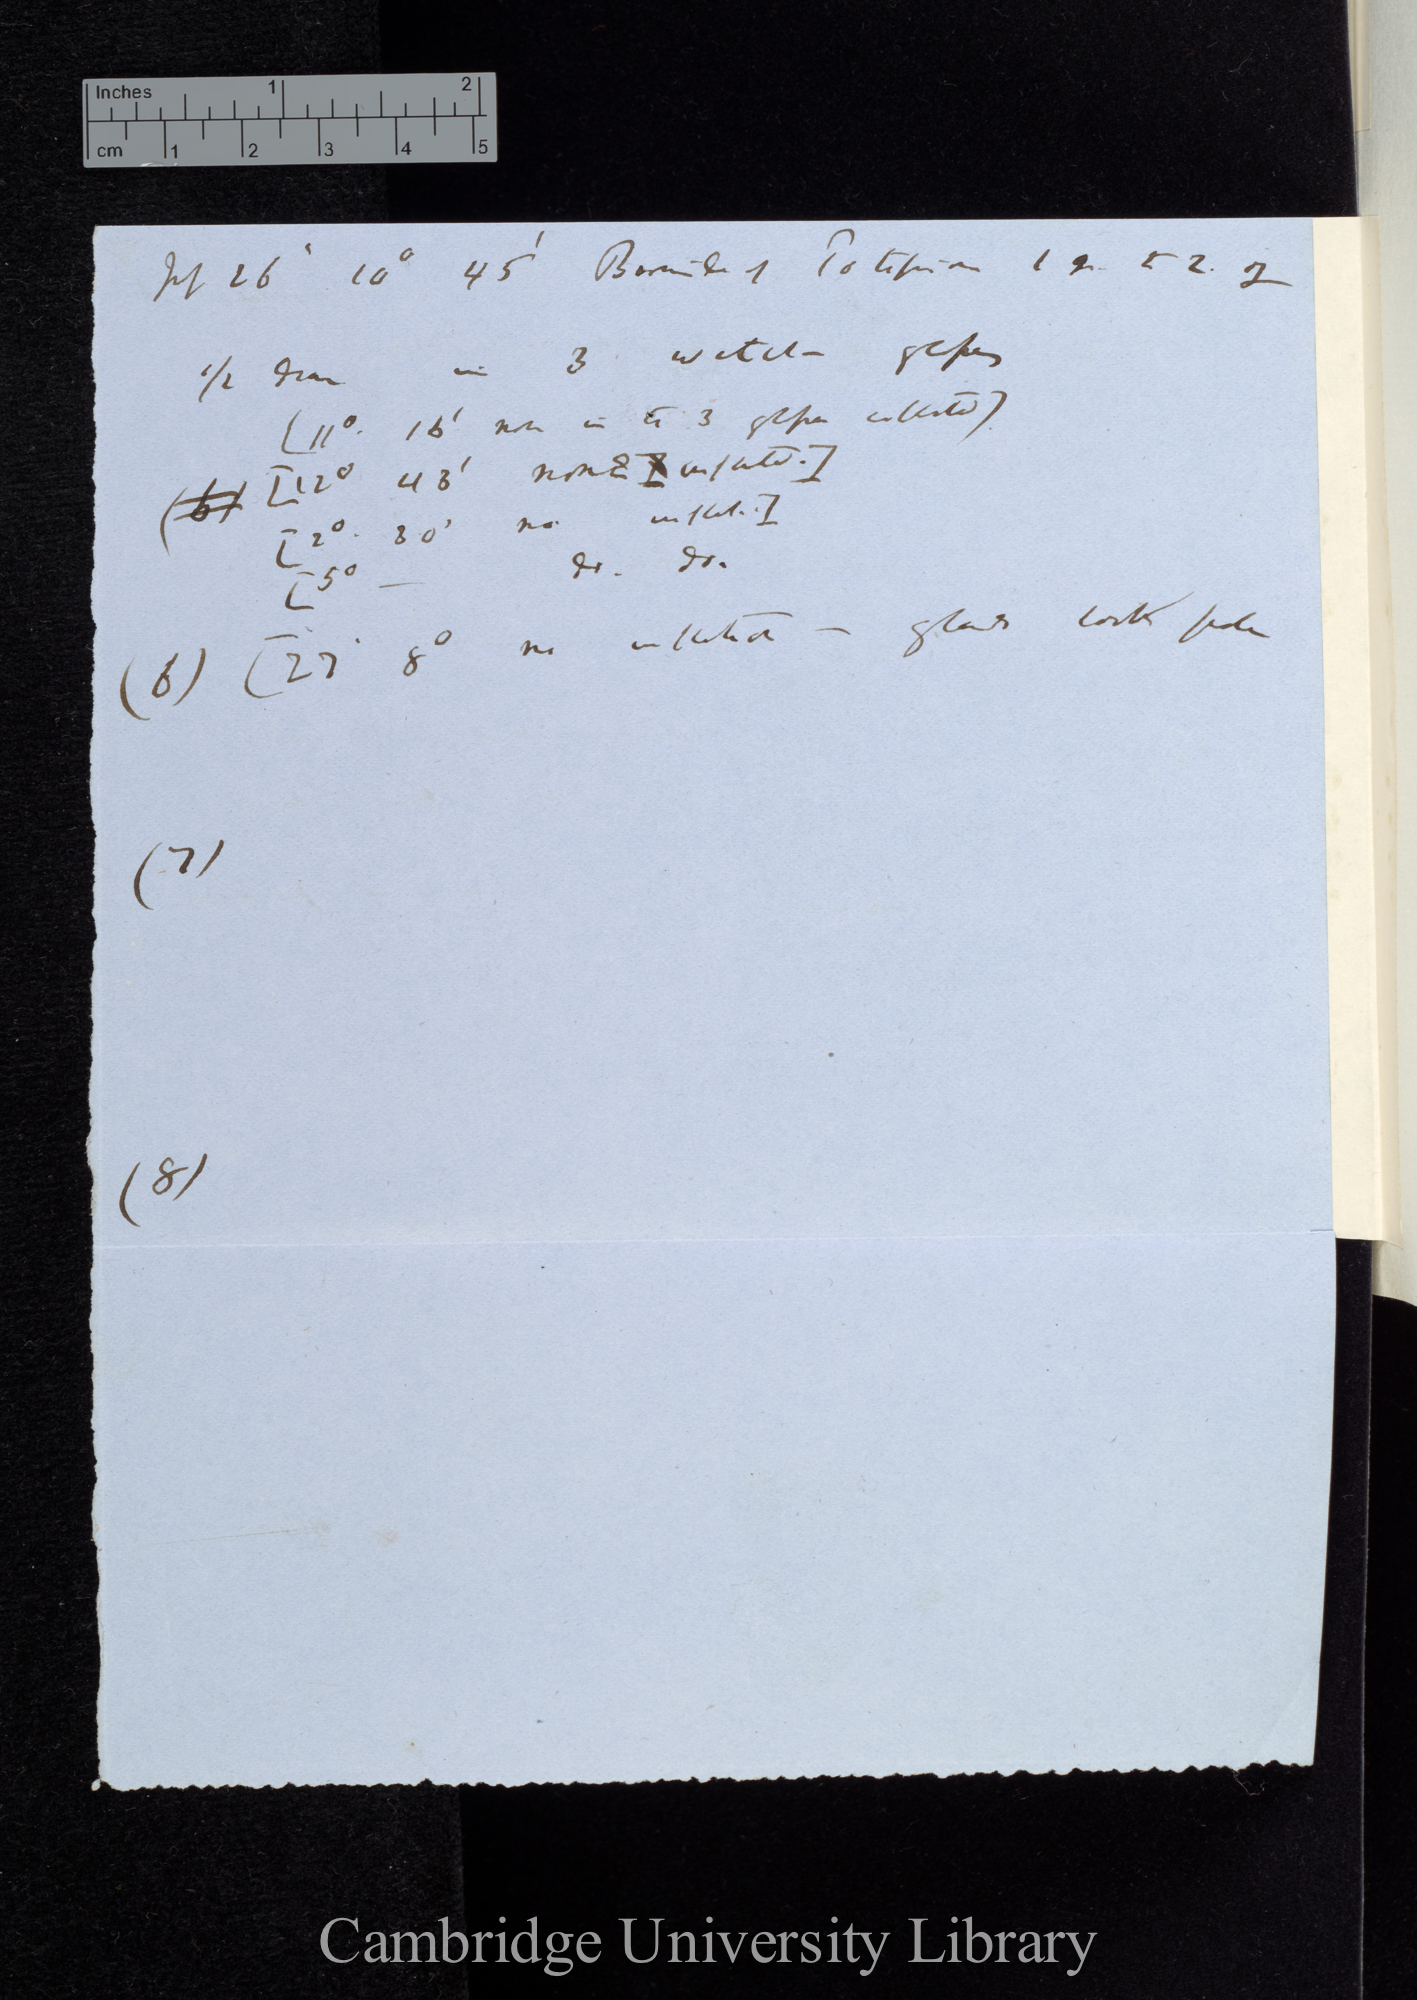 Inches 1 2
cm 1 2 3 4 5
26 10° 45' Bromide of Potassium 1 gr. to 2. oz
1/2 dram in 3 watch glasses
[11°. 16' now in to 3 glasses inflected]
(6) [12° 43' none inflected.]
[2°. 30' no inflect.]
[5° — do. do.
(6) [27 8° no inflection — glands look
(7)
(8)
Cambridge University Library